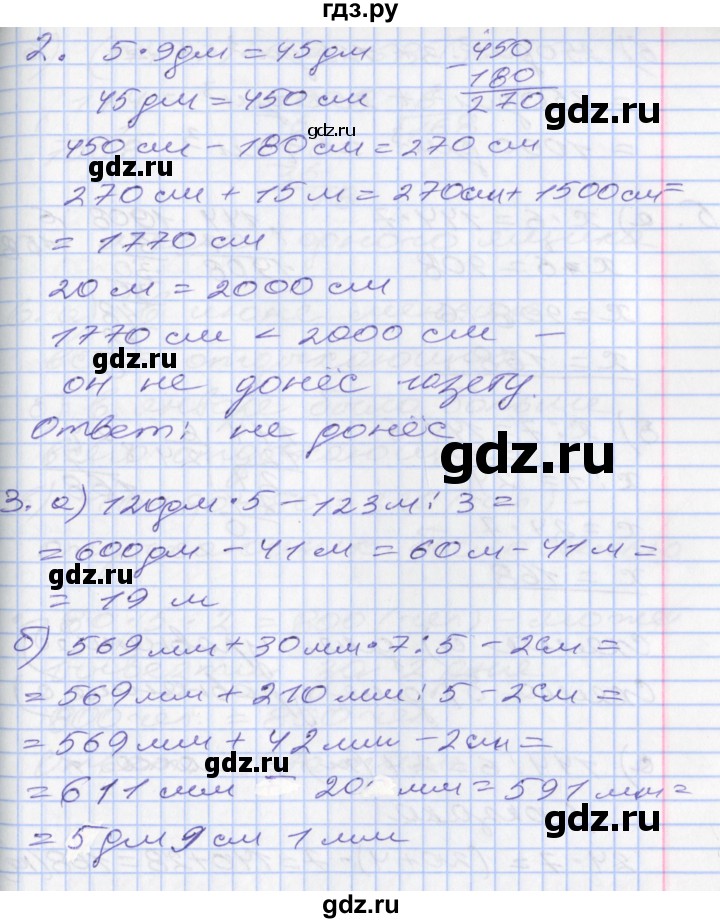 гдз.ру
2. 5·9дм = 45дм
45дм = 450 см
- 450
180
270
gdz.ru
450 см - 180см = 270 см
gdz.ru
gdz.ru
270 см + 15 м = 270см + 1500см =
= 1770 см
20 м = 2000 см
1770 см < 2000 см —
gdz.ru
он не донёс газету.
Ответ: не донёс
gdz.ru
3. а) 120дм·5 - 123м : 3 =
= 600дм - 41 м = 60м - 41 м =
gdz.ru
= 19 м
б) 569мм + 30мм·7:5 - 2см =
= 569мм + 210мм : 5 - 2см =
= 569мм + 42мм - 2см =
gdz.ru
= 611 мм - 20 мм = 591 мм =
gdz.ru
= 5дм 9см 1мм
gdz.ru